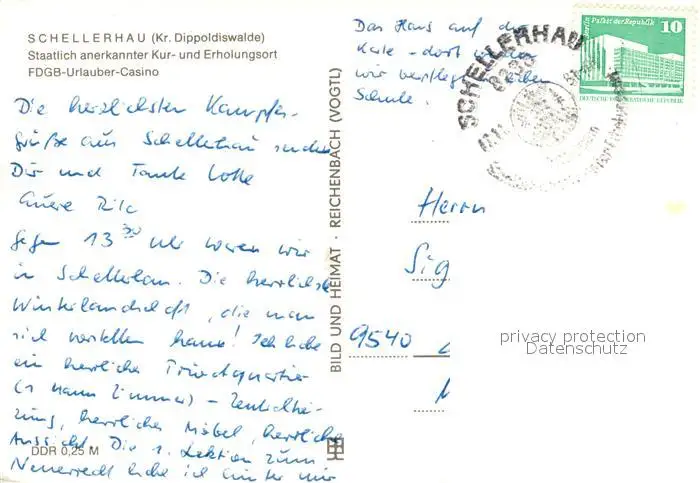 SCHELLERHAU (Kr. Dippoldiswalde)
Staatlich anerkannter Kur- und Erholungsort
FDGB-Urlauber-Casino
Die herzlichsten Kampfes-
grüße aus Schellerhau senden
Dir und Tante Lotte
Eure
Gegen 13 30 Uhr waren wir
in Schellerhau. Die herrlichste
Winterlandschaft, die man
sich vorstellen kann! Ich habe
ein herrliches Privatquartier
(1 Mann Zimmer) – Zentralhei-
zung, herrliche Möbel, herrliche
Aussicht. Die 1. Lektion zum
habe ich hinter mir
DDR 0,25 M
BILD UND HEIMAT · REICHENBACH (VOGTL)
Das Haus auf der
Karte – dort werden
wir verpflegt,
Schule.
SCHELLERHAU
Palast der Republik
10
DEUTSCHE DEMOKRATISCHE REPUBLIK
Herrn
Sig
9540
privacy protection
Datenschutz